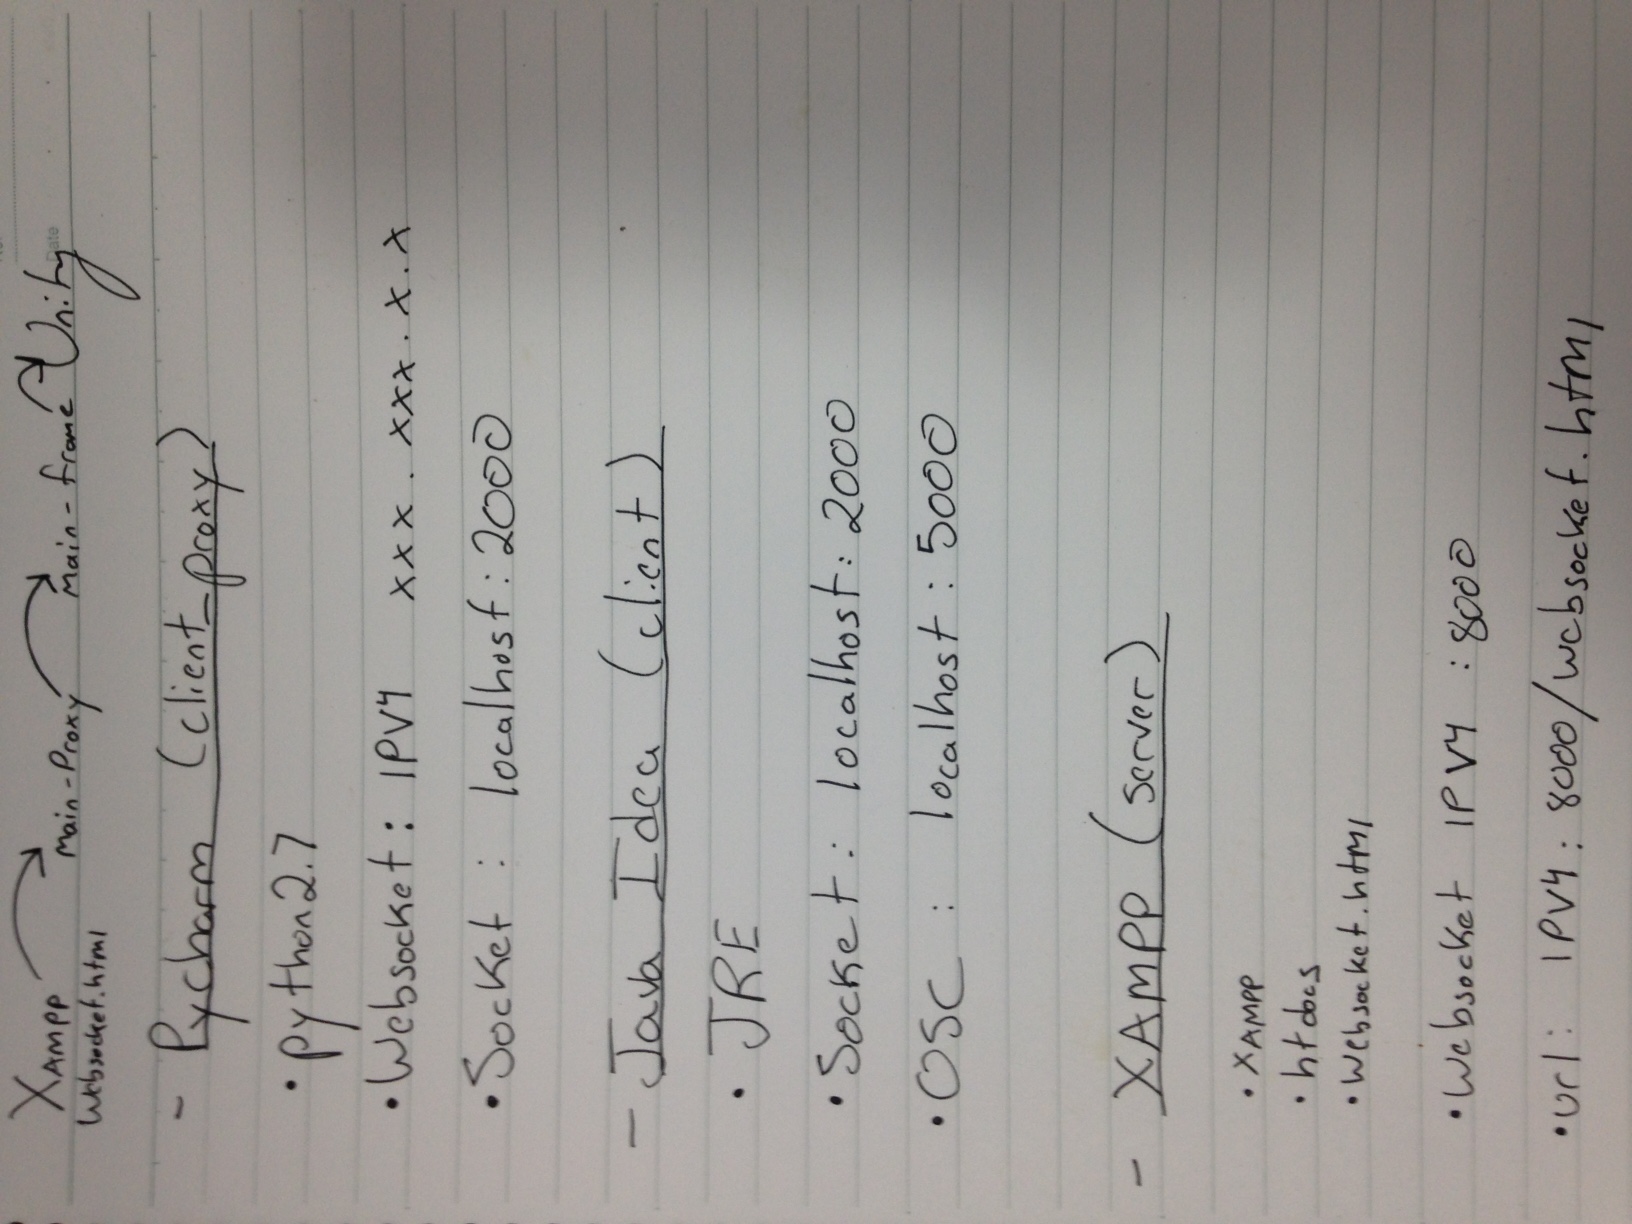 XAMPP Main-Proxy Main-frame Unity
Websocket.html
Date
- Pycharm (client_proxy)
• python2.7
• Websocket: IPV4 xxx.xxx.x.x
• Socket : localhost:2000
- Java Idea (client)
• JRE
• Socket: localhost:2000
• OSC : localhost:5000
- XAMPP (server)
• XAMPP
• htdocs
• Websocket.html
• Websocket IPV4 :8000
• url: IPV4:8000/websocket.html